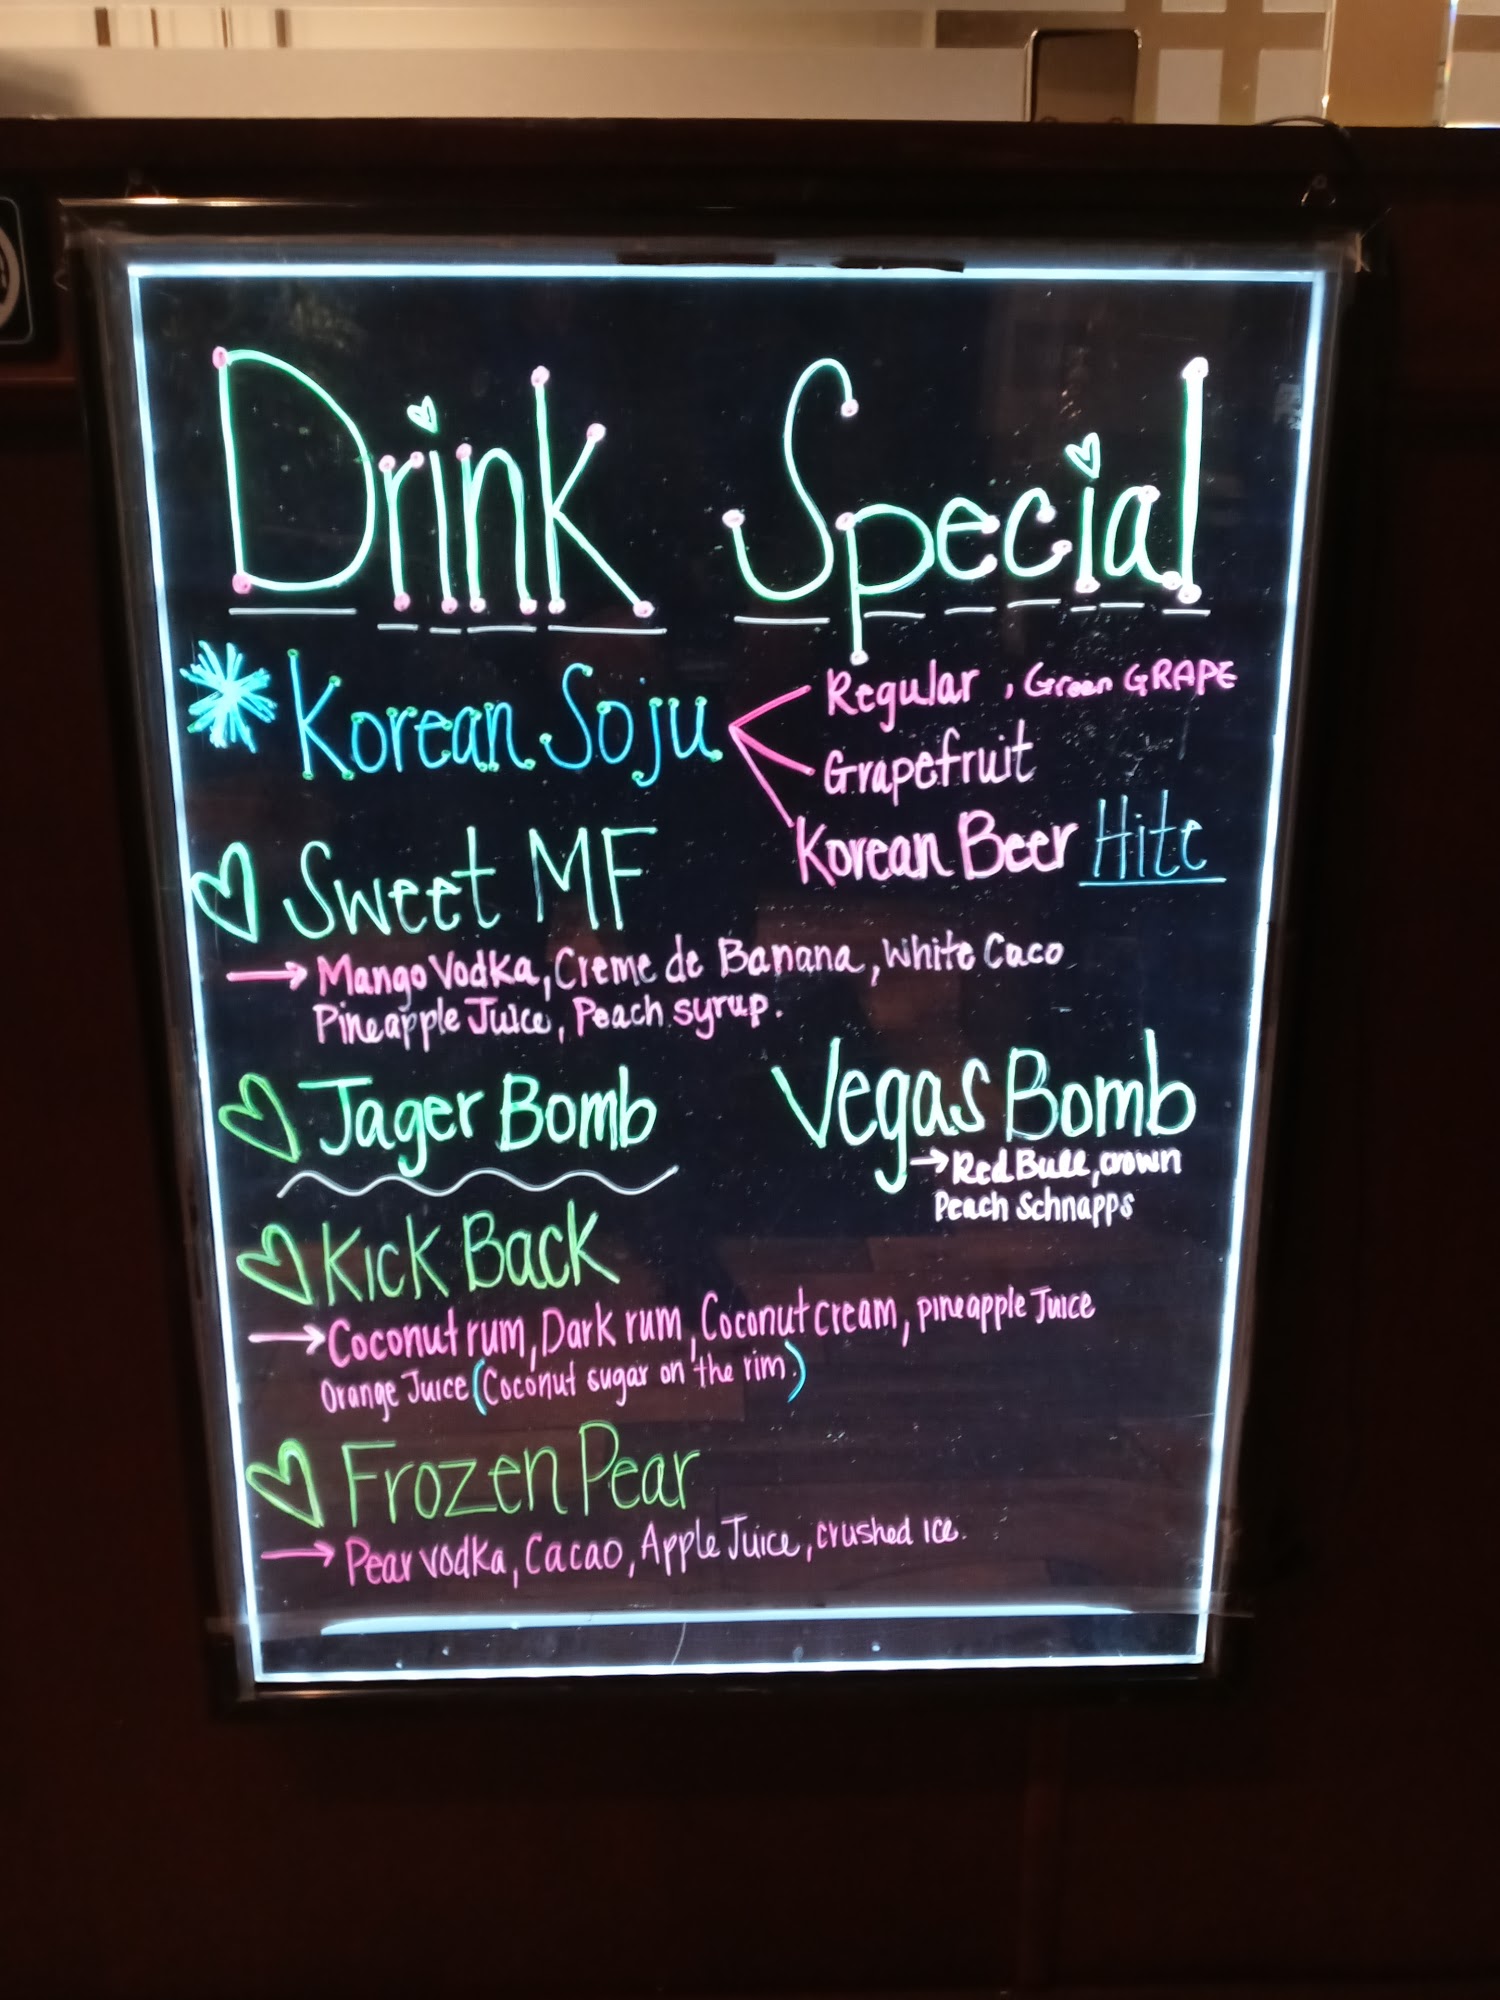 Drink Special
Korean Soju
Regular, Green GRAPE
Grapefruit
Korean Beer Hite
Sweet MF
Mango Vodka, Creme de Banana, White Caco
Pineapple Juice, Peach syrup.
Jager Bomb
Vegas Bomb
Red Bull, crown
Peach Schnapps
Kick Back
Coconut rum, Dark rum, Coconut cream, pineapple Juice
Orange Juice (Coconut sugar on the rim.)
Frozen Pear
Pear vodka, Cacao, Apple Juice, crushed ice.